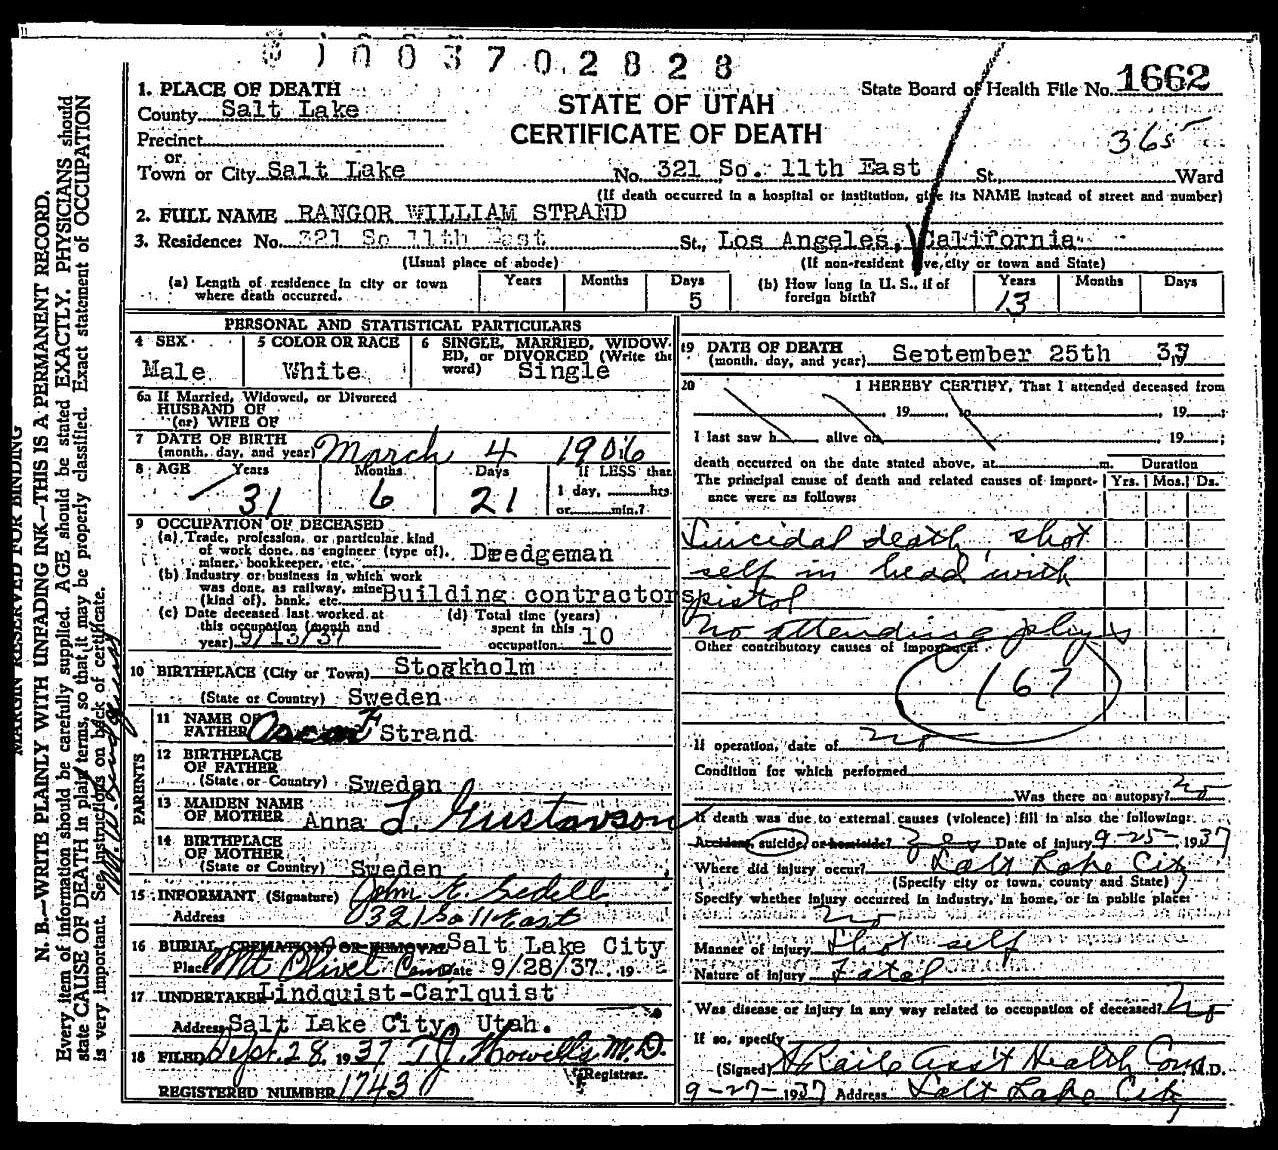 1003702828
1. PLACE OF DEATH
County Salt Lake
Precinct
or
Town or City Salt Lake
STATE OF UTAH
CERTIFICATE OF DEATH
State Board of Health File No. 1662
365
No. 321 So. 11th East St. Ward
(If death occurred in a hospital or institution, give its NAME instead of street and number)
2. FULL NAME RANGOR WILLIAM STRAND
3. Residence: No. 321 So 11th East St., Los Angeles, California
(Usual place of abode) (If non-resident give city or town and State)
(a) Length of residence in city or town where death occurred. Years Months Days 5
(b) How long in U. S., if of foreign birth? Years 13 Months Days
PERSONAL AND STATISTICAL PARTICULARS
4 SEX Male
5 COLOR OR RACE White
6 SINGLE, MARRIED, WIDOWED, or DIVORCED (Write the word) Single
6a If Married, Widowed, or Divorced
HUSBAND OF
(or) WIFE OF
7 DATE OF BIRTH
(month, day, and year) March 4 1906
8 AGE Years 31 Months 6 Days 21 If LESS than
1 day, hrs.
or min.?
9 OCCUPATION OF DECEASED
(a) Trade, profession, or particular kind
of work done, as engineer (type of),
miner, bookkeeper, etc. Dredgeman
(b) Industry or business in which work
was done, as railway, mine
(kind of), bank, etc. Building contractors
(c) Date deceased last worked at
this occupation (month and
year) 9/13/37
(d) Total time (years)
spent in this
occupation 10
10 BIRTHPLACE (City or Town) Stockholm
(State or Country) Sweden
PARENTS
11 NAME OF
FATHER Oscar F Strand
12 BIRTHPLACE
OF FATHER
(State or Country) Sweden
13 MAIDEN NAME
OF MOTHER Anna L. Gustavson
14 BIRTHPLACE
OF MOTHER
(State or Country) Sweden
15 INFORMANT (Signature) John E. Sedell
Address 321 So 11 East
16 BURIAL, CREMATION OR REMOVAL Salt Lake City
Place Mt Olivet Cem Date 9/28/37 19
17 UNDERTAKER Lindquist-Carlquist
Address Salt Lake City, Utah.
18 FILED Sept. 28 1937 T J Howells M.D.
Registrar.
REGISTERED NUMBER 1743
19 DATE OF DEATH
(month, day, and year) September 25th 37
20 I HEREBY CERTIFY, That I attended deceased from
, 19 to , 19 ;
I last saw h alive on , 19 ;
death occurred on the date stated above, at m. Duration
The principal cause of death and related causes of importance were as follows: Yrs. Mos. Ds.
Suicidal death, shot
self in head with
pistol
No attending phys
Other contributory causes of importance:
167
If operation, date of no
Condition for which performed
Was there an autopsy? no
If death was due to external causes (violence) fill in also the following:
Accident, suicide, or homicide? yes Date of injury 9-25-1937
Where did injury occur? Salt Lake City
(Specify city or town, county and State)
Specify whether injury occurred in industry, in home, or in public place:
no
Manner of injury Shot self
Nature of injury Fatal
Was disease or injury in any way related to occupation of deceased? No
If so, specify
(Signed) Ass't Health Com M.D.
9-27-1937 Address Salt Lake City
MARGIN RESERVED FOR BINDING
N. B.—WRITE PLAINLY WITH UNFADING INK—THIS IS A PERMANENT RECORD.
Every item of information should be carefully supplied. AGE should be stated EXACTLY. PHYSICIANS should
state CAUSE OF DEATH in plain terms, so that it may be properly classified. Exact statement of OCCUPATION
is very important. See instructions on back of certificate.